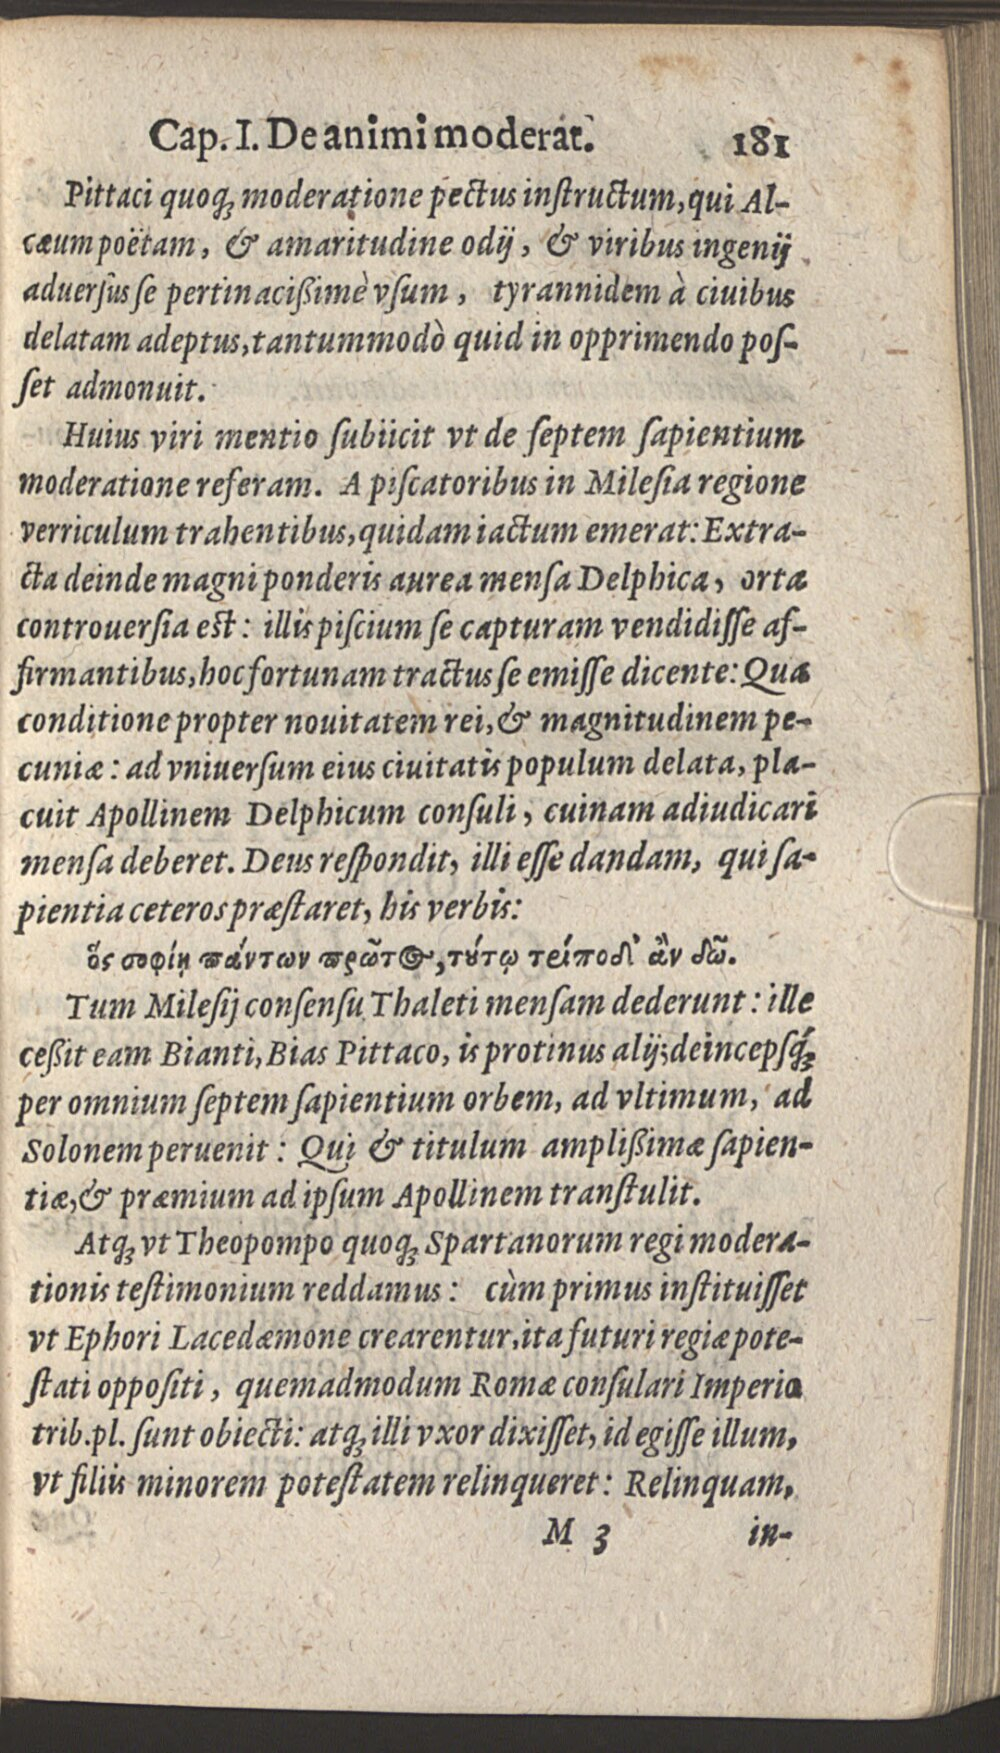 Cap. I. De animi moderat. 181
Pittaci quoq; moderatione pectus inſtructum, qui Al-
cæum poëtam, & amaritudine odij, & viribus ingenij
aduerſus ſe pertinacißimè vſum, tyrannidem à ciuibus
delatam adeptus, tantummodò quid in opprimendo poſ-
ſet admonuit.
Huius viri mentio ſubiicit vt de ſeptem ſapientium
moderatione referam. A piſcatoribus in Mileſia regione
verriculum trahentibus, quidam iactum emerat: Extra-
cta deinde magni ponderis aurea menſa Delphica, orta
controuerſia est: illis piſcium ſe capturam vendidiſſe af-
firmantibus, hoc fortunam tractus ſe emiſſe dicente: Qua
conditione propter nouitatem rei, & magnitudinem pe-
cuniæ: ad vniuerſum eius ciuitatis populum delata, pla-
cuit Apollinem Delphicum conſuli, cuinam adiudicari
menſa deberet. Deus reſpondit, illi eſſe dandam, qui ſa-
pientia ceteros præſtaret, his verbis:
ὅς σοφίῃ πάντων πρῶτος, τούτῳ τρίποδ' ἂν δῶ.
Tum Mileſij conſenſu Thaleti menſam dederunt: ille
ceßit eam Bianti, Bias Pittaco, is protinus alij; deincepſq́;
per omnium ſeptem ſapientium orbem, ad vltimum, ad
Solonem peruenit: Qui & titulum amplißimæ ſapien-
tiæ, & præmium ad ipſum Apollinem tranſtulit.
Atq; vt Theopompo quoq; Spartanorum regi modera-
tionis teſtimonium reddamus: cùm primus inſtituiſſet
vt Ephori Lacedæmone crearentur, ita futuri regiæ pote-
ſtati oppoſiti, quemadmodum Romæ conſulari Imperio
trib. pl. ſunt obiecti: atq; illi vxor dixiſſet, id egiſſe illum,
vt filiis minorem poteſtatem relinqueret: Relinquam,
M 3 in-